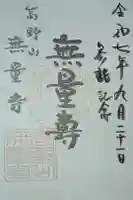 令和七年九月二十一日
参龍記念
無量壽
高野山
無量寺